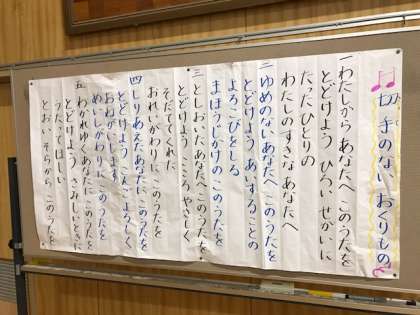 切手のない おくりもの
一 わたしから あなたへ このうたを
とどけよう ひろい せかいに
たったひとりの
わたしのすきな あなたへ
二 ゆめのない あなたへ このうたを
とどけよう あいすることの
よろこびをしる
まほうじかけの このうたを
三 としおいた あなたへ このうたを
とどけよう こころ やさしく
そだててくれた
おれいがわりに このうたを
四 しりあえた あなたに このうたを
とどけよう こんご よろしく
おねがいします
めいしがわりに このうたを
五 わかれゆく あなたに このうたを
とどけよう さみしいときに
うたってほしい
とおい そらから このうたを